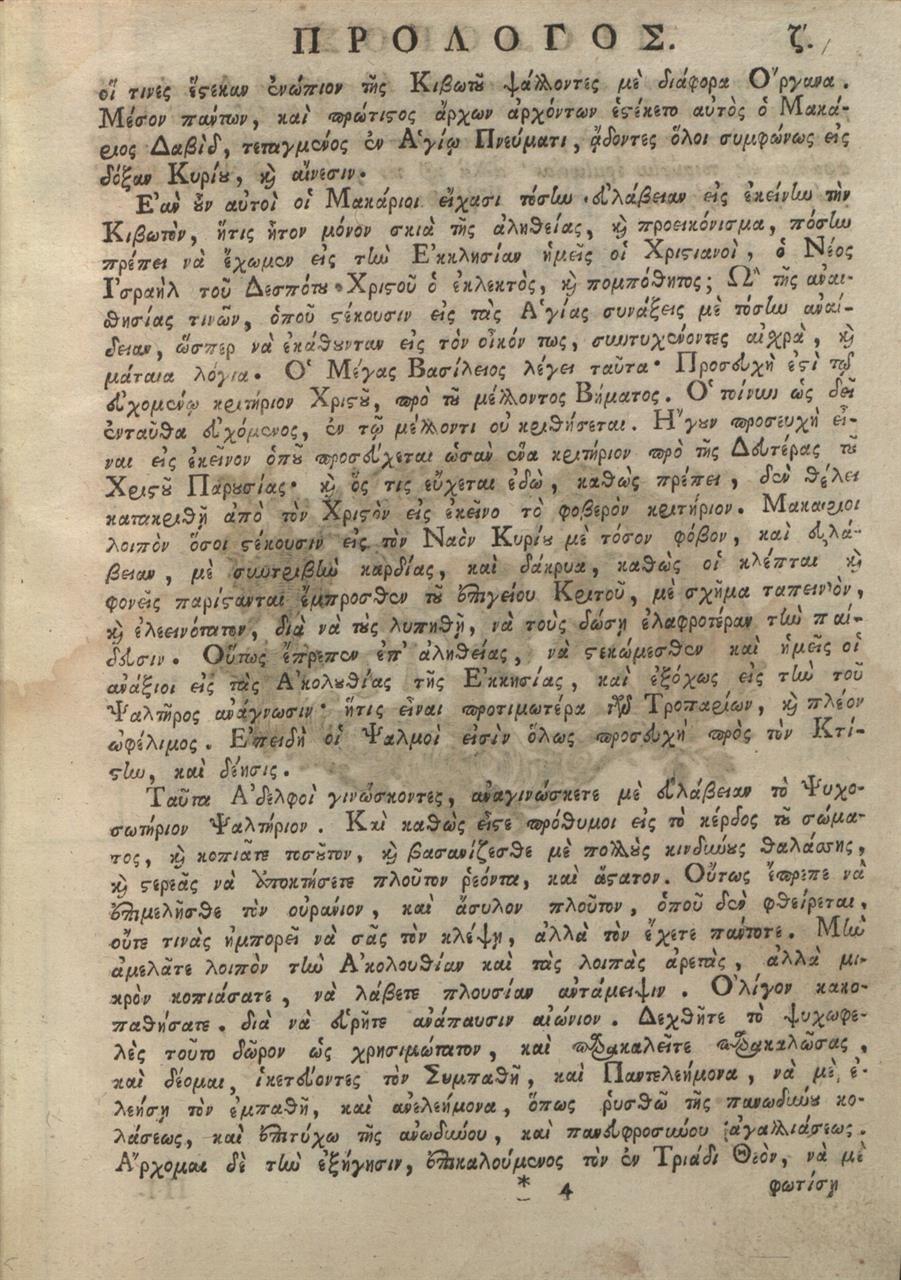 ΠΡΟΛΟΓΟΣ. ζ'.
οἵ τινες ἔστεκαν ἐνώπιον τῆς Κιβωτοῦ ψάλλοντες μὲ διάφορα Ὄργανα.
Μέσον πάντων, καὶ πρώτιστος ἄρχων ἀρχόντων ἐστέκετο αὐτὸς ὁ Μακά-
ριος Δαβὶδ, τεταγμένος ἐν Ἁγίῳ Πνεύματι, ᾄδοντες ὅλοι συμφώνως εἰς
δόξαν Κυρίου, καὶ αἴνεσιν.
Ἐὰν οὖν αὐτοὶ οἱ Μακάριοι εἴχασι τόσην εὐλάβειαν εἰς ἐκείνην τὴν
Κιβωτὸν, ἥτις ἦτον μόνον σκιὰ τῆς ἀληθείας, καὶ προεικόνισμα, πόσην
πρέπει νὰ ἔχωμεν εἰς τὴν Ἐκκλησίαν ἡμεῖς οἱ Χριστιανοὶ, ὁ Νέος
Ἰσραὴλ τοῦ Δεσπότου Χριστοῦ ὁ ἐκλεκτὸς, καὶ πομπόθητος; Ὢ τῆς ἀναι-
σθησίας τινῶν, ὁποῦ στέκουσιν εἰς τὰς Ἁγίας συνάξεις μὲ τόσην ἀναί-
δειαν, ὥσπερ νὰ ἐκάθουνταν εἰς τὸν οἶκόν τως, συντυχένοντες αἰσχρὰ, καὶ
μάταια λόγια. Ὁ Μέγας Βασίλειος λέγει ταῦτα· Προσευχὴ ἐστὶ τῷ
εὐχομένῳ κριτήριον Χριστοῦ, πρὸ τοῦ μέλλοντος Βήματος. Ὁ τοίνυν ὡς δεῖ
ἐνταῦθα εὐχόμενος, ἐν τῷ μέλλοντι οὐ κριθήσεται. Ἤγουν προσευχὴ εἶ-
ναι εἰς ἐκεῖνον ὁποῦ προσεύχεται ὡσὰν ἕνα κριτήριον πρὸ τῆς Δευτέρας τοῦ
Χριστοῦ Παρουσίας· καὶ ὅς τις εὔχεται ἐδὼ, καθὼς πρέπει, δὲν θέλει
κατακριθῇ ἀπὸ τὸν Χριστὸν εἰς ἐκεῖνο τὸ φοβερὸν κριτήριον. Μακάριοι
λοιπὸν ὅσοι στέκουσιν εἰς τὸν Ναὸν Κυρίου μὲ τόσον φόβον, καὶ εὐλά-
βειαν, μὲ συντριβὴν καρδίας, καὶ δάκρυα, καθὼς οἱ κλέπται καὶ
φονεῖς παρίστανται ἔμπροσθεν τοῦ ἐπιγείου Κριτοῦ, μὲ σχῆμα ταπεινὸν,
καὶ ἐλεεινότατον, διὰ νὰ τοὺς λυπηθῇ, νὰ τοὺς δώσῃ ἐλαφροτέραν τὴν παί-
δευσιν. Οὕτως ἔπρεπεν ἐπ' ἀληθείας, νὰ στεκώμεσθεν καὶ ἡμεῖς οἱ
ἀνάξιοι εἰς τὰς Ἀκολουθίας τῆς Ἐκκησίας, καὶ ἐξόχως εἰς τὴν τοῦ
Ψαλτῆρος ἀνάγνωσιν· ἥτις εἶναι προτιμωτέρα τῶν Τροπαρίων, καὶ πλέον
ὠφέλιμος. Ἐπειδὴ οἱ Ψαλμοὶ εἰσὶν ὅλως προσευχὴ πρὸς τὸν Κτί-
στην, καὶ δέησις.
Ταῦτα Ἀδελφοὶ γινώσκοντες, ἀναγινώσκετε μὲ εὐλάβειαν τὸ Ψυχο-
σωτήριον Ψαλτήριον. Καὶ καθὼς εἶστε πρόθυμοι εἰς τὸ κέρδος τοῦ σώμα-
τος, καὶ κοπιᾶτε τοσοῦτον, καὶ βασανίζεσθε μὲ πολλοὺς κινδύνους θαλάσσης,
καὶ στερεᾶς νὰ ὑποκτήσετε πλοῦτον ῥεόντα, καὶ ἄστατον. Οὕτως ἔπρεπε νὰ
ἐπιμελῆσθε τὸν οὐράνιον, καὶ ἄσυλον πλοῦτον, ὁποῦ δὲν φθείρεται,
οὔτε τινὰς ἠμπορεῖ νὰ σᾶς τὸν κλέψῃ, ἀλλὰ τὸν ἔχετε πάντοτε. Μὴν
ἀμελᾶτε λοιπὸν τὴν Ἀκολουθίαν καὶ τὰς λοιπὰς ἀρετὰς, ἀλλὰ μι-
κρὸν κοπιάσατε, νὰ λάβετε πλουσίαν ἀντάμειψιν. Ὀλίγον κακο-
παθήσατε. διὰ νὰ εὑρῆτε ἀνάπαυσιν αἰώνιον. Δεχθῆτε τὸ ψυχωφε-
λὲς τοῦτο δῶρον ὡς χρησιμώτατον, καὶ παρακαλεῖτε παρακαλῶσας,
καὶ δέομαι, ἱκετεύοντες τὸν Συμπαθῆ, καὶ Παντελεήμονα, νὰ μὲ ἐ-
λεήσῃ τὸν ἐμπαθῆ, καὶ ἀνελεήμονα, ὅπως ῥυσθῶ τῆς πανωδύνου κο-
λάσεως, καὶ ἐπιτύχω τῆς ἀνωδύνου, καὶ πανευφροσύνου ἀγαλλιάσεως.
Ἄρχομαι δὲ τὴν ἐξήγησιν, ἐπικαλούμενος τὸν ἐν Τριάδι Θεὸν, νὰ μὲ
* 4 φωτίσῃ